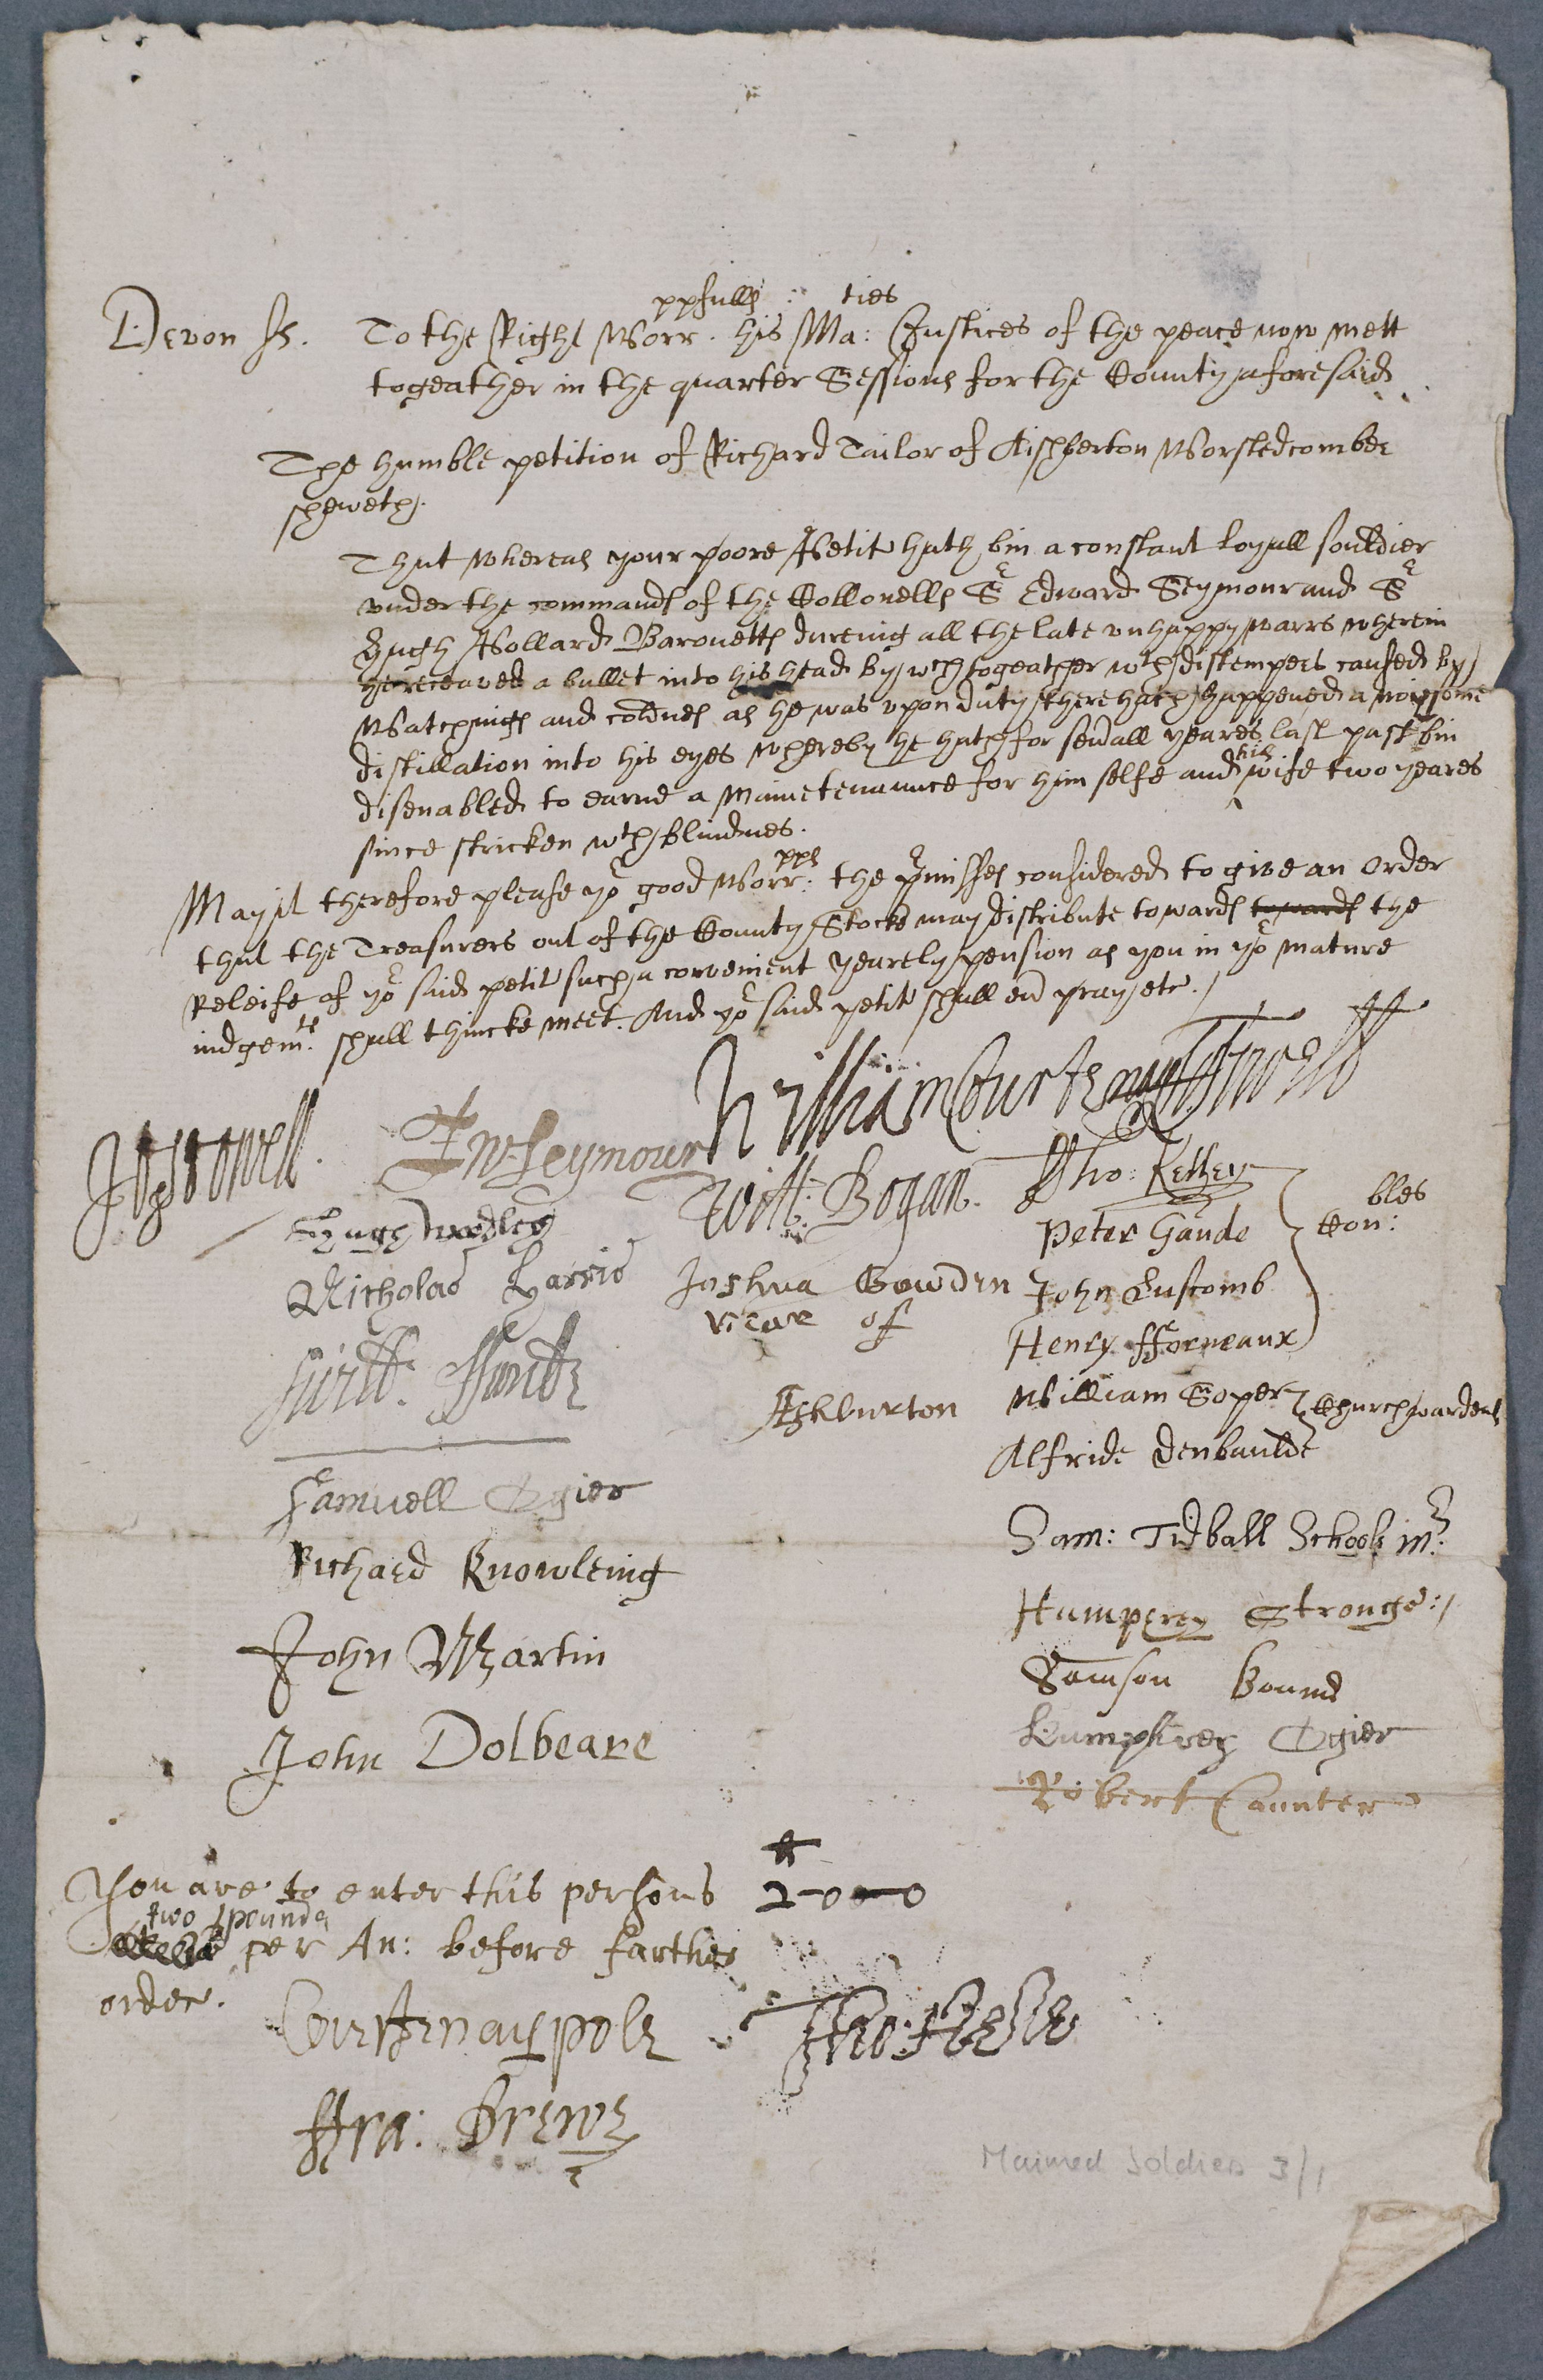 Devon ss. To the Right Worr ppfulls his Ma: ties Justices of the peace now mett
togeather in the quarter Sessions for the County aforesaid
The humble petition of Richard Tailor of Aishberton Worstedcomber
sheweth.
That whereas your poore Petitr hath bin a constant loyall souldier
vnder the commands of the Collonells Sr Edward Seymour and Sr
Hugh Pollard Baronetts dureing all the late vnhappy warrs wherein
he receaved a bullet into his head by wch togeather wth distempers caused by
Watchings and coldnes as he was vpon duty there hath happened a noysome
distillation into his eyes whereby he hath for seuall yeares last past bin
disenabled to earne a Mainetenannce for him selfe and his wife two yeares
since stricken wth blindnes.
May it therefore please yor good Worr: pps the pmisses considered to give an Order
that the Treasurers out of the County Stocke may distribute towards towards the
Releife of yor said petitr such a convenient yearely pension as you in yor mature
iudgemts: shall thincke meet. And yor said petitr shall eu pray etc.
William Courtenay
Jo Stowell Seymour
Will: Bogan Tho: Kelley
Peter Gaude Con: bles
Nicholas Harris Joshua Bowden John Luscomb
vicar of Henry fforneaux
Ashburton William Soper Churchwardens
Alfride Denbaulde
Samuell Ogier
Sam: Tidball Schoole mr:
Richard Knowleing
Humperey Stronge
John Martin
Samson Bound
Humphrey Ogier
John Dolbeare
Robert Caunter
You are to enter this persons 2-0-0
two pounds
per An: before farther
order.
Courtenay pole
ffra: Drewe
Maimed Soldiers 3/1